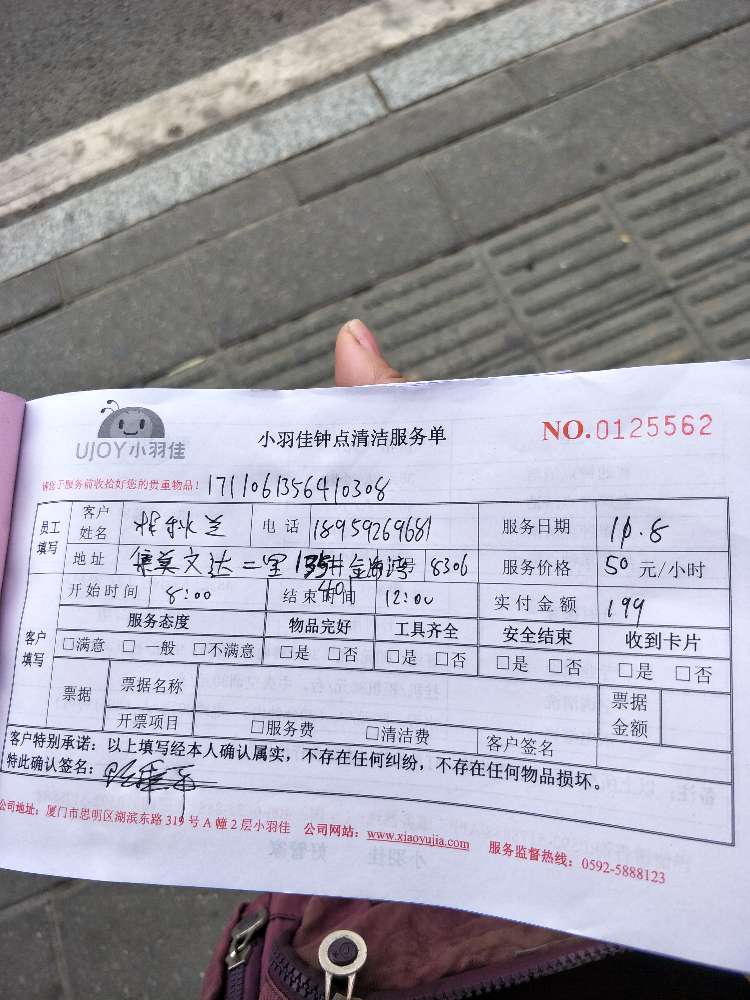 UJOY小羽佳
小羽佳钟点清洁服务单
NO.0125562
请您于服务前收拾好您的贵重物品！ 1711061356410308
员工填写 客户姓名 电话 18959269681 服务日期 10.8
地址 集美文达二里 金海湾 号 8306 服务价格 50 元/小时
客户填写 开始时间 8:00 结束时间 12:00 实付金额 199
服务态度 物品完好 工具齐全 安全结束 收到卡片
□满意 □一般 □不满意 □是 □否 □是 □否 □是 □否 □是 □否
票据 票据名称 票据金额
开票项目 □服务费 □清洁费 客户签名
客户特别承诺：以上填写经本人确认属实，不存在任何纠纷，不存在任何物品损坏。
特此确认签名：
公司地址：厦门市思明区湖滨东路319号A幢2层小羽佳 公司网站：www.xiaoyujia.com 服务监督热线：0592-5888123